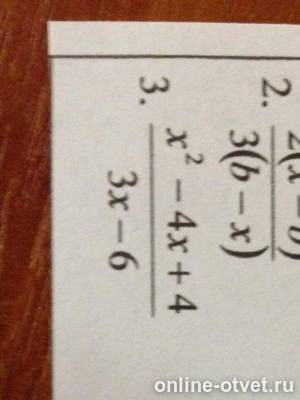 2. 2(x − b)
3(b − x)
3. x² − 4x + 4
3x − 6
online-otvet.ru